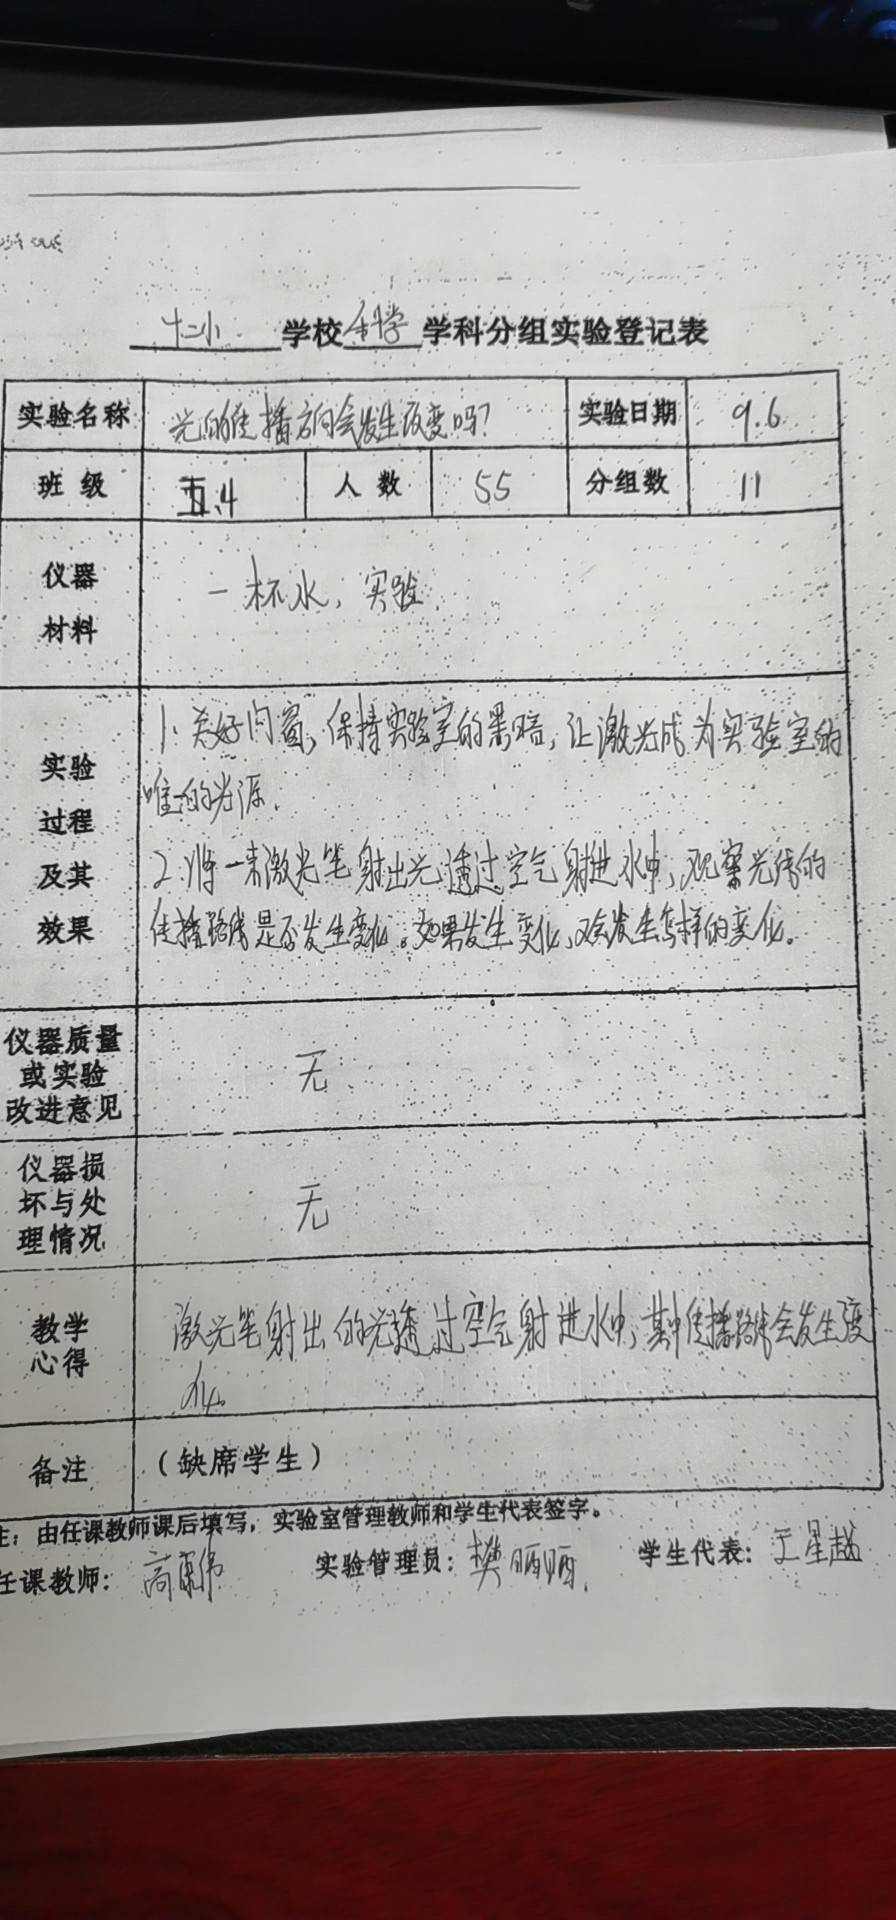 十二小 学校 科学 学科分组实验登记表
实验名称 光的传播方向会发生改变吗? 实验日期 9.6
班级 五.4 人数 55 分组数 11
仪器
材料
一杯水，实验
实验
过程
及其
效果
1、关好门窗，保持实验室的黑暗，让激光成为实验室的
唯一的光源.
2.将一束激光笔射出光透过空气射进水中，观察光传的
传播路线是否发生变化。如果发生变化，又会发生怎样的变化。
仪器质量
或实验
改进意见
无
仪器损
坏与处
理情况
无
教学
心得
激光笔射出的光透过空气射进水中，其中传播路线会发生变
化。
备注 （缺席学生）
注：由任课教师课后填写，实验室管理教师和学生代表签字。
任课教师： 高 实验管理员：樊丽丽. 学生代表：王星越